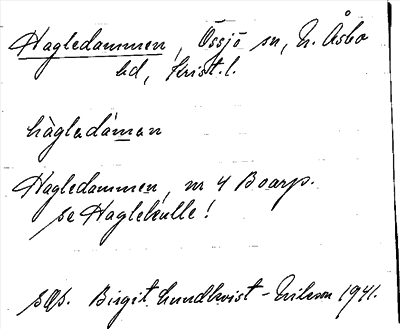 Hagledammen, Össjö sn, N. Åsbo
hd, Krist. l.
hàgledámen
Hagledammen, nr 4 Boarp.
se Haglekulle!
Birgit Lundkvist-Nilsson 1941.